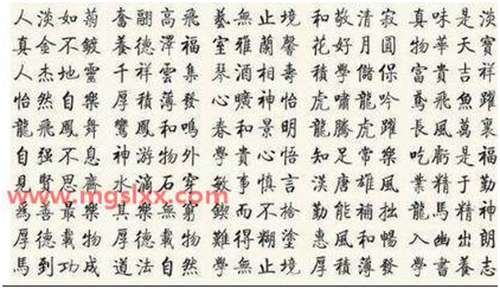 人淡如菊 奮翮高飛 藝無止境 和敬清寂 真味是淡
真金不鍍 養德澤福 室雅蘭馨 花好月圓 物華天寶
人杰地靈 千祥雲集 富貴吉祥
怡然自樂 厚積薄發 曠神怡 虎嘯龍吟 鳶飛魚躍
龍飛鳳舞 鸞鳳和鳴 春和景明 龍騰虎躍 長風萬里
自强不息 神游物外 知足常樂 吃虧是福
見賢思齊 水滴石穿 敏事慎言 漢唐雄風 業精于勤
www.mgslxx.com
為善最樂 其樂無窮 鍥而不捨 勤能補拙 龍馬精神
厚德載物 厚德載物 難得糊塗 惠風和暢 入幽出朗
馬到功成 道法自然 學無止境 厚積薄發 學書養志